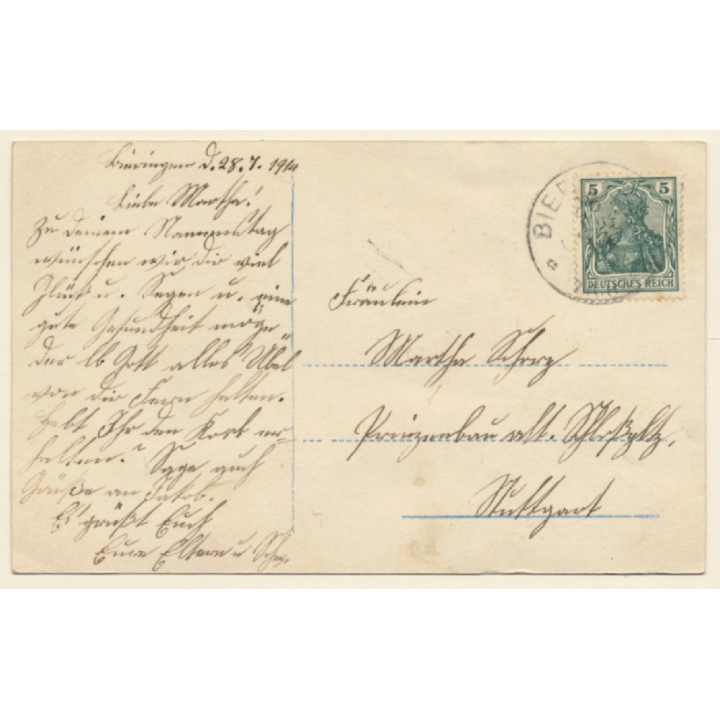 Bieringen d. 28.7.1914
Liebe Martha!
Zu deinem Nammenstag
wünschen wir dir viel
Glück u. Segen u. eine
gute Gesundheit möge
der lb Gott alles Übel
von dir Fern halten.
Habt Ihr den Korb er-
halten? Sage auch
Grüße an Jakob.
Es grüßt Euch
Eure Eltern u
BIER
5 5
DEUTSCHES REICH
Fräulein
Martha
Prinzenbau alt. Schloßpltz,
Stuttgart